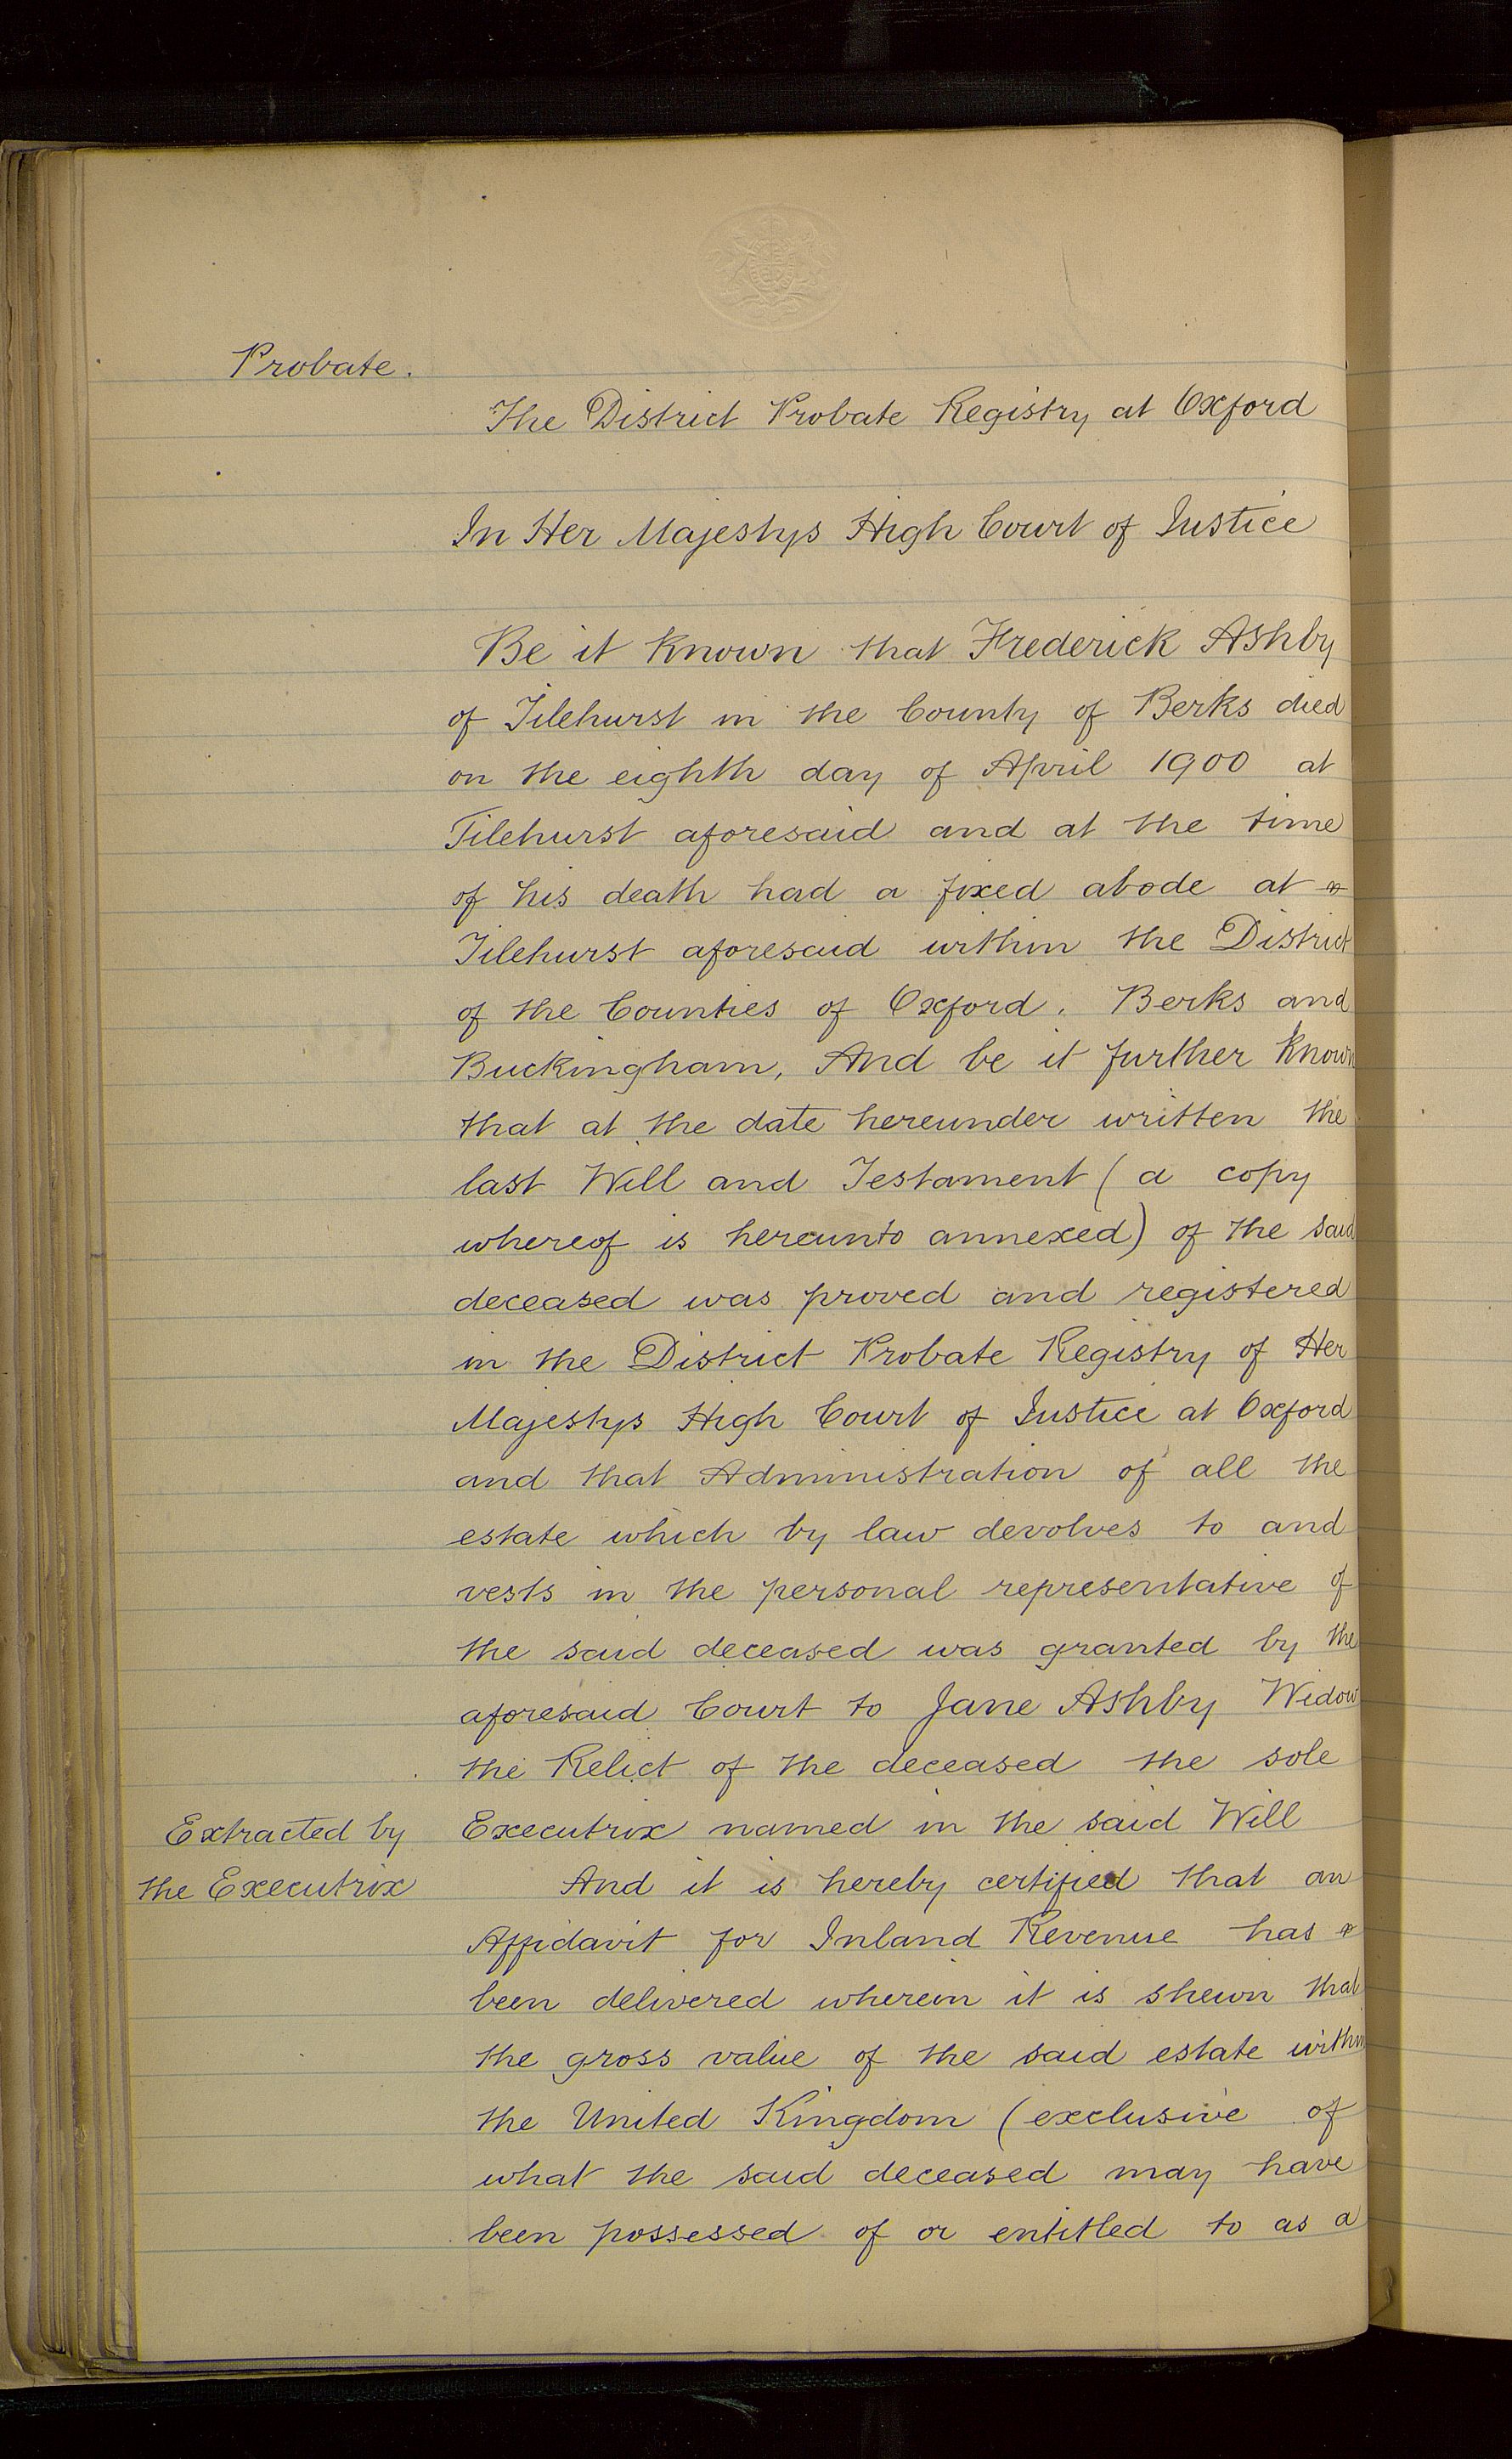 Probate.
The District Probate Registry at Oxford
In Her Majestys High Court of Justice
Be it known that Frederick Ashby
of Tilehurst in the County of Berks died
on the eighth day of April 1900 at
Tilehurst aforesaid and at the time
of his death had a fixed abode at
Tilehurst aforesaid within the District
of the Counties of Oxford, Berks and
Buckingham, And be it further known
that at the date hereunder written the
last Will and Testament (a copy
whereof is hereunto annexed) of the said
deceased was proved and registered
in the District Probate Registry of Her
Majestys High Court of Justice at Oxford
and that Administration of all the
estate which by law devolves to and
vests in the personal representative of
the said deceased was granted by the
aforesaid Court to Jane Ashby Widow
the Relict of the deceased the sole
Executrix named in the said Will
Extracted by
the Executrix
And it is hereby certified that an
Affidavit for Inland Revenue has
been delivered wherein it is shewn that
the gross value of the said estate within
the United Kingdom (exclusive of
what the said deceased may have
been possessed of or entitled to as a